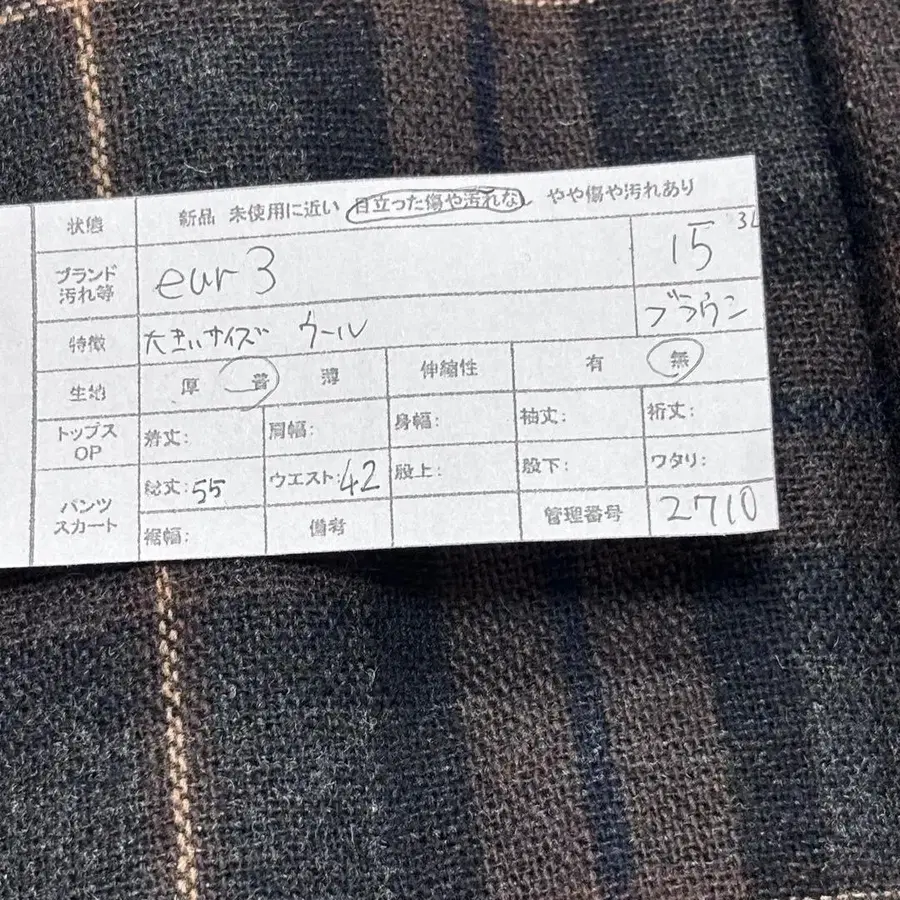 状態 新品 未使用に近い 目立った傷や汚れな やや傷や汚れあり
ブランド 汚れ等 eur3 15 3L
特徴 大きいサイズ ウール ブラウン
生地 厚 普 薄 伸縮性 有 無
トップス OP 着丈: 肩幅: 身幅: 袖丈: 裄丈:
パンツ スカート 総丈:55 ウエスト:42 股上: 股下: ワタリ:
裾幅: 備考 管理番号 2710